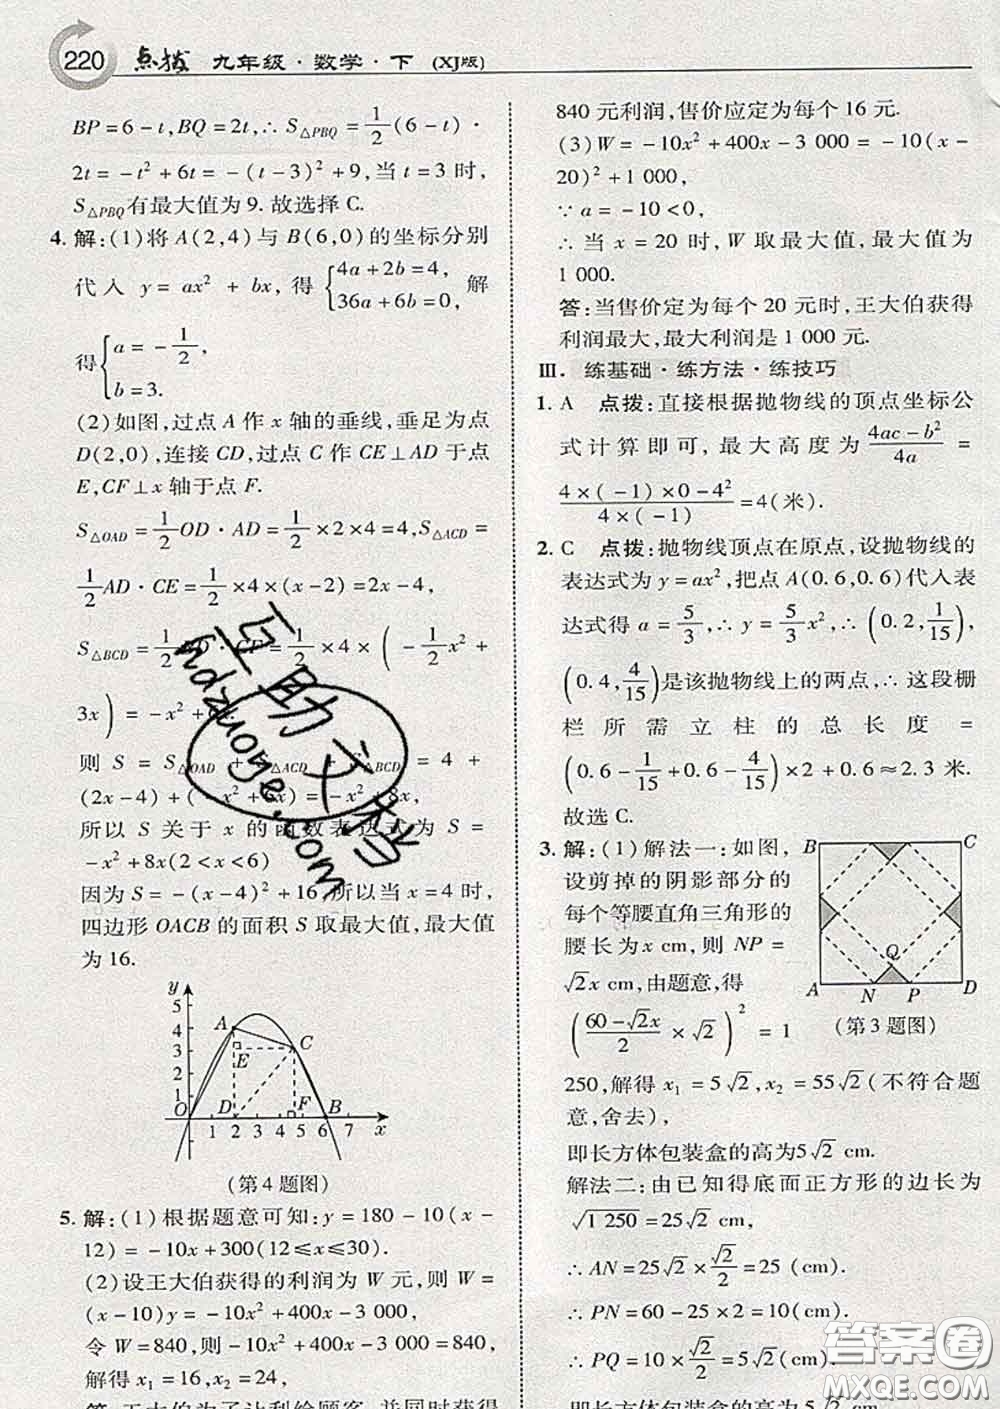 220 点拨 九年级·数学·下 (XJ版)
BP=6-t,BQ=2t,∴ S△PBQ=1/2(6-t)·
2t=-t²+6t=-(t-3)²+9,当 t=3 时,
S△PBQ有最大值为9.故选择 C.
4. 解:(1)将 A(2,4)与 B(6,0)的坐标分别
代入 y=ax²+bx,得{4a+2b=4, 36a+6b=0,解
得{a=-1/2, b=3.
(2)如图,过点 A 作 x 轴的垂线,垂足为点
D(2,0),连接 CD,过点 C 作 CE⊥AD 于点
E,CF⊥x 轴于点 F.
S△OAD=1/2OD·AD=1/2×2×4=4,S△ACD=
1/2AD·CE=1/2×4×(x-2)=2x-4,
S△BCD=1/2 ·CF=1/2×4×(-1/2x²+
3x)=-x²+6x.
则 S=S△OAD+S△ACD+S△BCD=4+
(2x-4)+(-x²+6x)=-x²+8x,
所以 S 关于 x 的函数表达式为 S=
-x²+8x(2<x<6)
因为 S=-(x-4)²+16,所以当 x=4 时,
四边形 OACB 的面积 S 取最大值,最大值
为 16.
y 5 4 3 2 1 A E C O D F B 1 2 3 4 5 6 7 x
(第4题图)
5. 解:(1)根据题意可知:y=180-10(x-
12)=-10x+300(12≤x≤30).
(2)设王大伯获得的利润为 W 元,则 W=
(x-10)y=-10x²+400x-3 000,
令 W=840,则-10x²+400x-3 000=840,
解得 x₁=16,x₂=24,
答:王大伯为了让利给顾客,并同时获得
840 元利润,售价应定为每个 16 元.
(3)W=-10x²+400x-3 000=-10(x-
20)²+1 000,
∵ a=-10<0,
∴ 当 x=20 时,W 取最大值,最大值为
1 000.
答:当售价定为每个 20 元时,王大伯获得
利润最大,最大利润是 1 000 元.
Ⅲ. 练基础·练方法·练技巧
1. A 点拨:直接根据抛物线的顶点坐标公
式计算即可,最大高度为(4ac-b²)/4a=
(4×(-1)×0-4²)/(4×(-1))=4(米).
2. C 点拨:抛物线顶点在原点,设抛物线的
表达式为 y=ax²,把点 A(0.6,0.6)代入表
达式得 a=5/3,∴ y=5/3x²,∴(0.2,1/15),
(0.4,4/15)是该抛物线上的两点,∴ 这段栅
栏所需立柱的总长度=
(0.6-1/15+0.6-4/15)×2+0.6≈2.3 米.
故选 C.
3. 解:(1)解法一:如图,
设剪掉的阴影部分的
每个等腰直角三角形的
腰长为 x cm,则 NP=
√2x cm,由题意,得
((60-√2x)/2×√2)²=1
B C Q A N P D
(第3题图)
250,解得 x₁=5√2,x₂=55√2(不符合题
意,舍去),
即长方体包装盒的高为5√2 cm.
解法二:由已知得底面正方形的边长为
√1 250=25√2 cm,
∴ AN=25√2×√2/2=25 (cm).
∴ PN=60-25×2=10(cm).
∴ PQ=10×√2/2=5√2(cm).
即长方体包装盒的高为5√2 cm.
互助文档
hdzuoye.com
答案圈
MXQE.COM